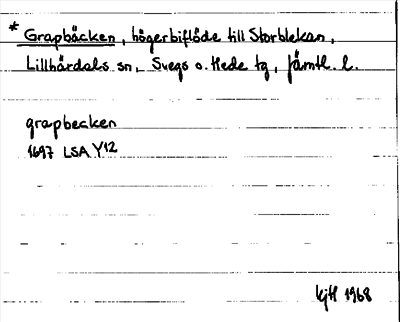 * Grapbäcken, högerbiflöde till Storblekan,
Lillhärdals sn, Svegs o. Hede tg, Jämtl. l.
grapbecken
1697 LSA Y12
kjtl 1968